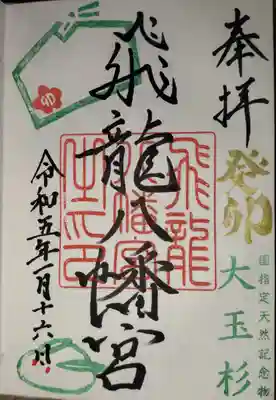 奉拝
癸卯
大玉杉
国指定天然記念物
飛龍八幡宮
飛龍八幡宮之印
卯
令和五年一月十六日